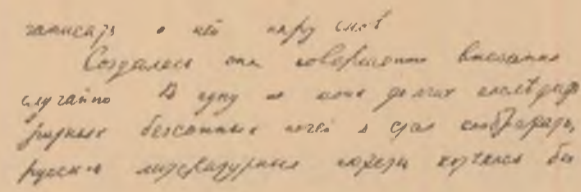 записать о ней пару слов
Создалась она совершенно внезапно
случайно В одну из моих долгих
безсонных ночей я стал соображать,
русских литературных хотелось бы